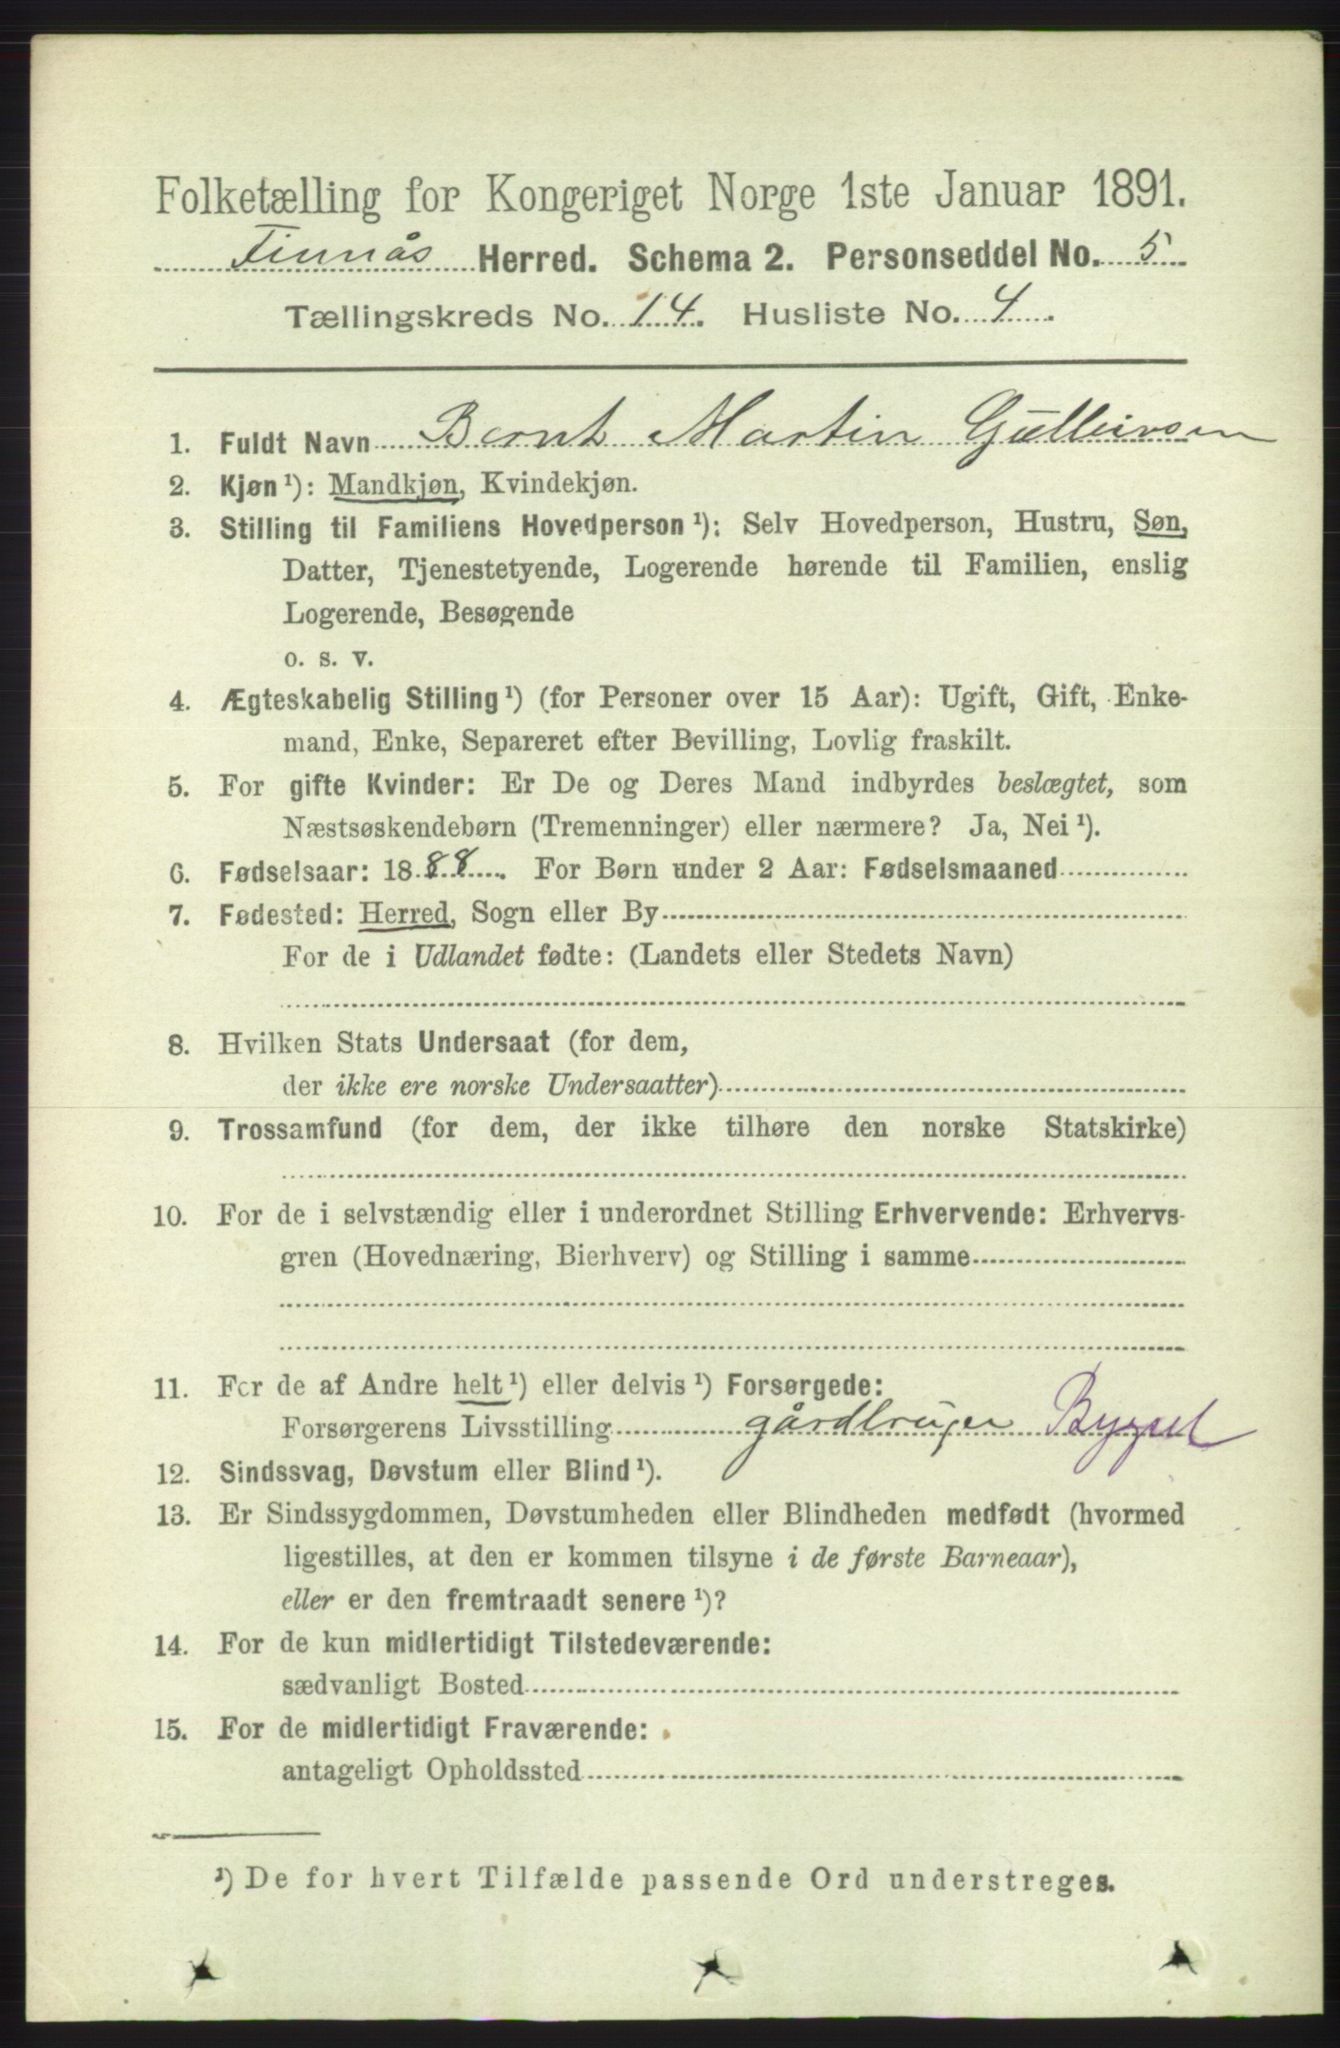 Folketælling for Kongeriget Norge 1ste Januar 1891.
Finnås Herred. Schema 2. Personseddel No. 5
Tællingskreds No. 14. Husliste No. 4.
1. Fuldt Navn Bernt Martin Gulleivsen
2. Kjøn ¹): Mandkjøn, Kvindekjøn.
3. Stilling til Familiens Hovedperson ¹): Selv Hovedperson, Hustru, Søn,
Datter, Tjenestetyende, Logerende hørende til Familien, enslig
Logerende, Besøgende
o. s. v.
4. Ægteskabelig Stilling ¹) (for Personer over 15 Aar): Ugift, Gift, Enke-
mand, Enke, Separeret efter Bevilling, Lovlig fraskilt.
5. For gifte Kvinder: Er De og Deres Mand indbyrdes beslægtet, som
Næstsøskendebørn (Tremenninger) eller nærmere? Ja, Nei ¹).
6. Fødselsaar: 1888. For Børn under 2 Aar: Fødselsmaaned
7. Fødested: Herred, Sogn eller By
For de i Udlandet fødte: (Landets eller Stedets Navn)
8. Hvilken Stats Undersaat (for dem,
der ikke ere norske Undersaatter)
9. Trossamfund (for dem, der ikke tilhøre den norske Statskirke)
10. For de i selvstændig eller i underordnet Stilling Erhvervende: Erhvervs-
gren (Hovednæring, Bierhverv) og Stilling i samme
11. For de af Andre helt ¹) eller delvis ¹) Forsørgede:
Forsørgerens Livsstilling gårdbruger
12. Sindssvag, Døvstum eller Blind ¹).
13. Er Sindssygdommen, Døvstumheden eller Blindheden medfødt (hvormed
ligestilles, at den er kommen tilsyne i de første Barneaar),
eller er den fremtraadt senere ¹)?
14. For de kun midlertidigt Tilstedeværende:
sædvanligt Bosted
15. For de midlertidigt Fraværende:
antageligt Opholdssted
¹) De for hvert Tilfælde passende Ord understreges.